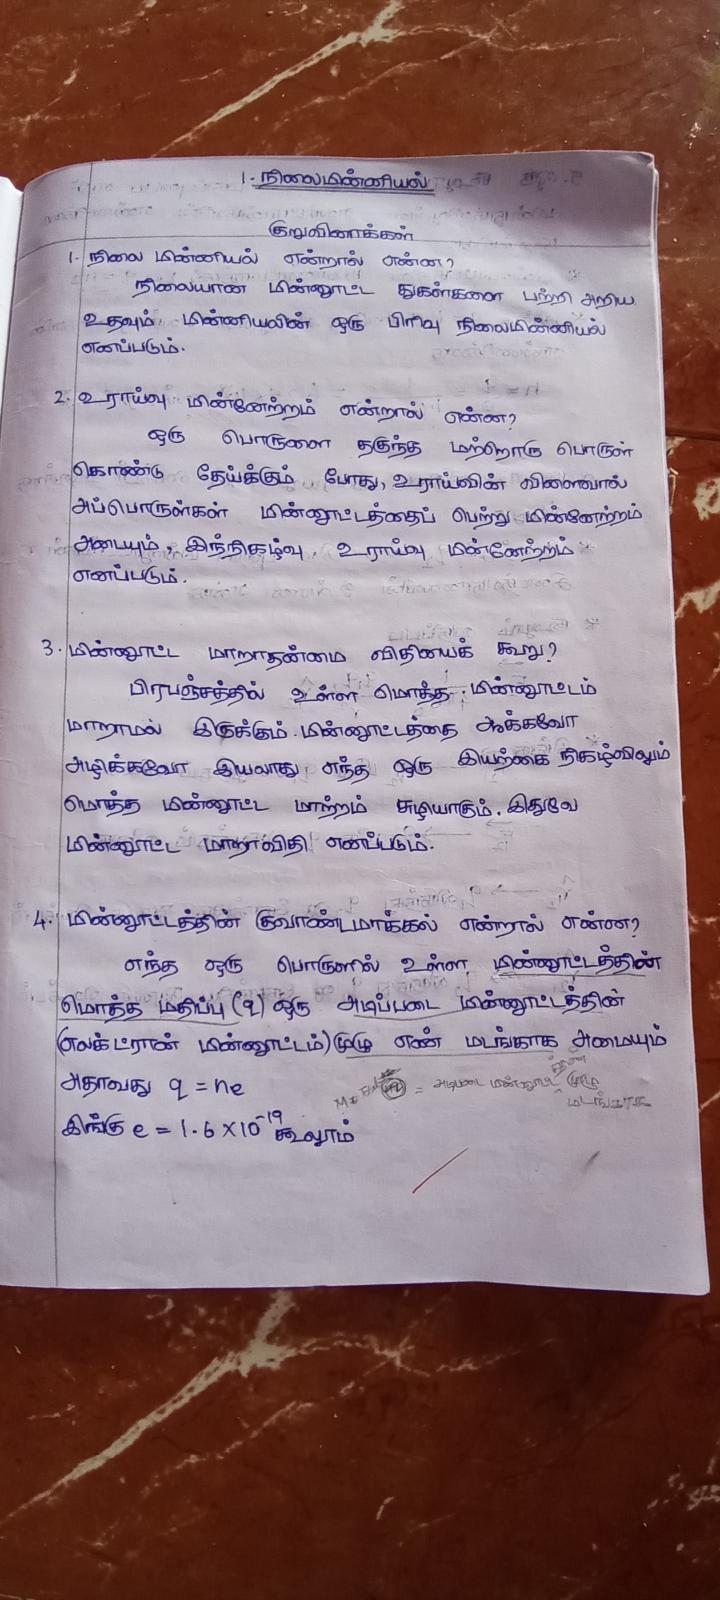 1. நிலைமின்னியல்
குறுவினாக்கள்
1. நிலை மின்னியல் என்றால் என்ன?
நிலையான மின்னூட்ட துகள்களை பற்றி அறிய
உதவும் மின்னியலின் ஒரு பிரிவு நிலைமின்னியல்
எனப்படும்.
2. உராய்வு மின்னேற்றம் என்றால் என்ன?
ஒரு பொருளை தகுந்த மற்றொரு பொருள்
கொண்டு தேய்க்கும் போது, உராய்வின் விளைவால்
அப்பொருள்கள் மின்னூட்டத்தைப் பெற்று மின்னேற்றம்
அடையும், இந்நிகழ்வு உராய்வு மின்னேற்றம்
எனப்படும்.
3. மின்னூட்ட மாறாதன்மை விதியைக் கூறு?
பிரபஞ்சத்தில் உள்ள மொத்த மின்னூட்டம்
மாறாமல் இருக்கும். மின்னூட்டத்தை ஆக்கவோ
அழிக்கவோ இயலாது எந்த ஒரு இயற்கை நிகழ்விலும்
மொத்த மின்னூட்ட மாற்றம் சுழியாகும். இதுவே
மின்னூட்ட மாறாவிதி எனப்படும்.
4. மின்னூட்டத்தின் குவாண்டமாக்கல் என்றால் என்ன?
எந்த ஒரு பொருளில் உள்ள மின்னூட்டத்தின்
மொத்த மதிப்பு (q) ஒரு அடிப்படை மின்னூட்டத்தின்
(எலக்ட்ரான் மின்னூட்டம்) முழு எண் மடங்காக அமையும்
அதாவது q = ne
இங்கு e = 1.6 × 10⁻¹⁹ கூலூம்